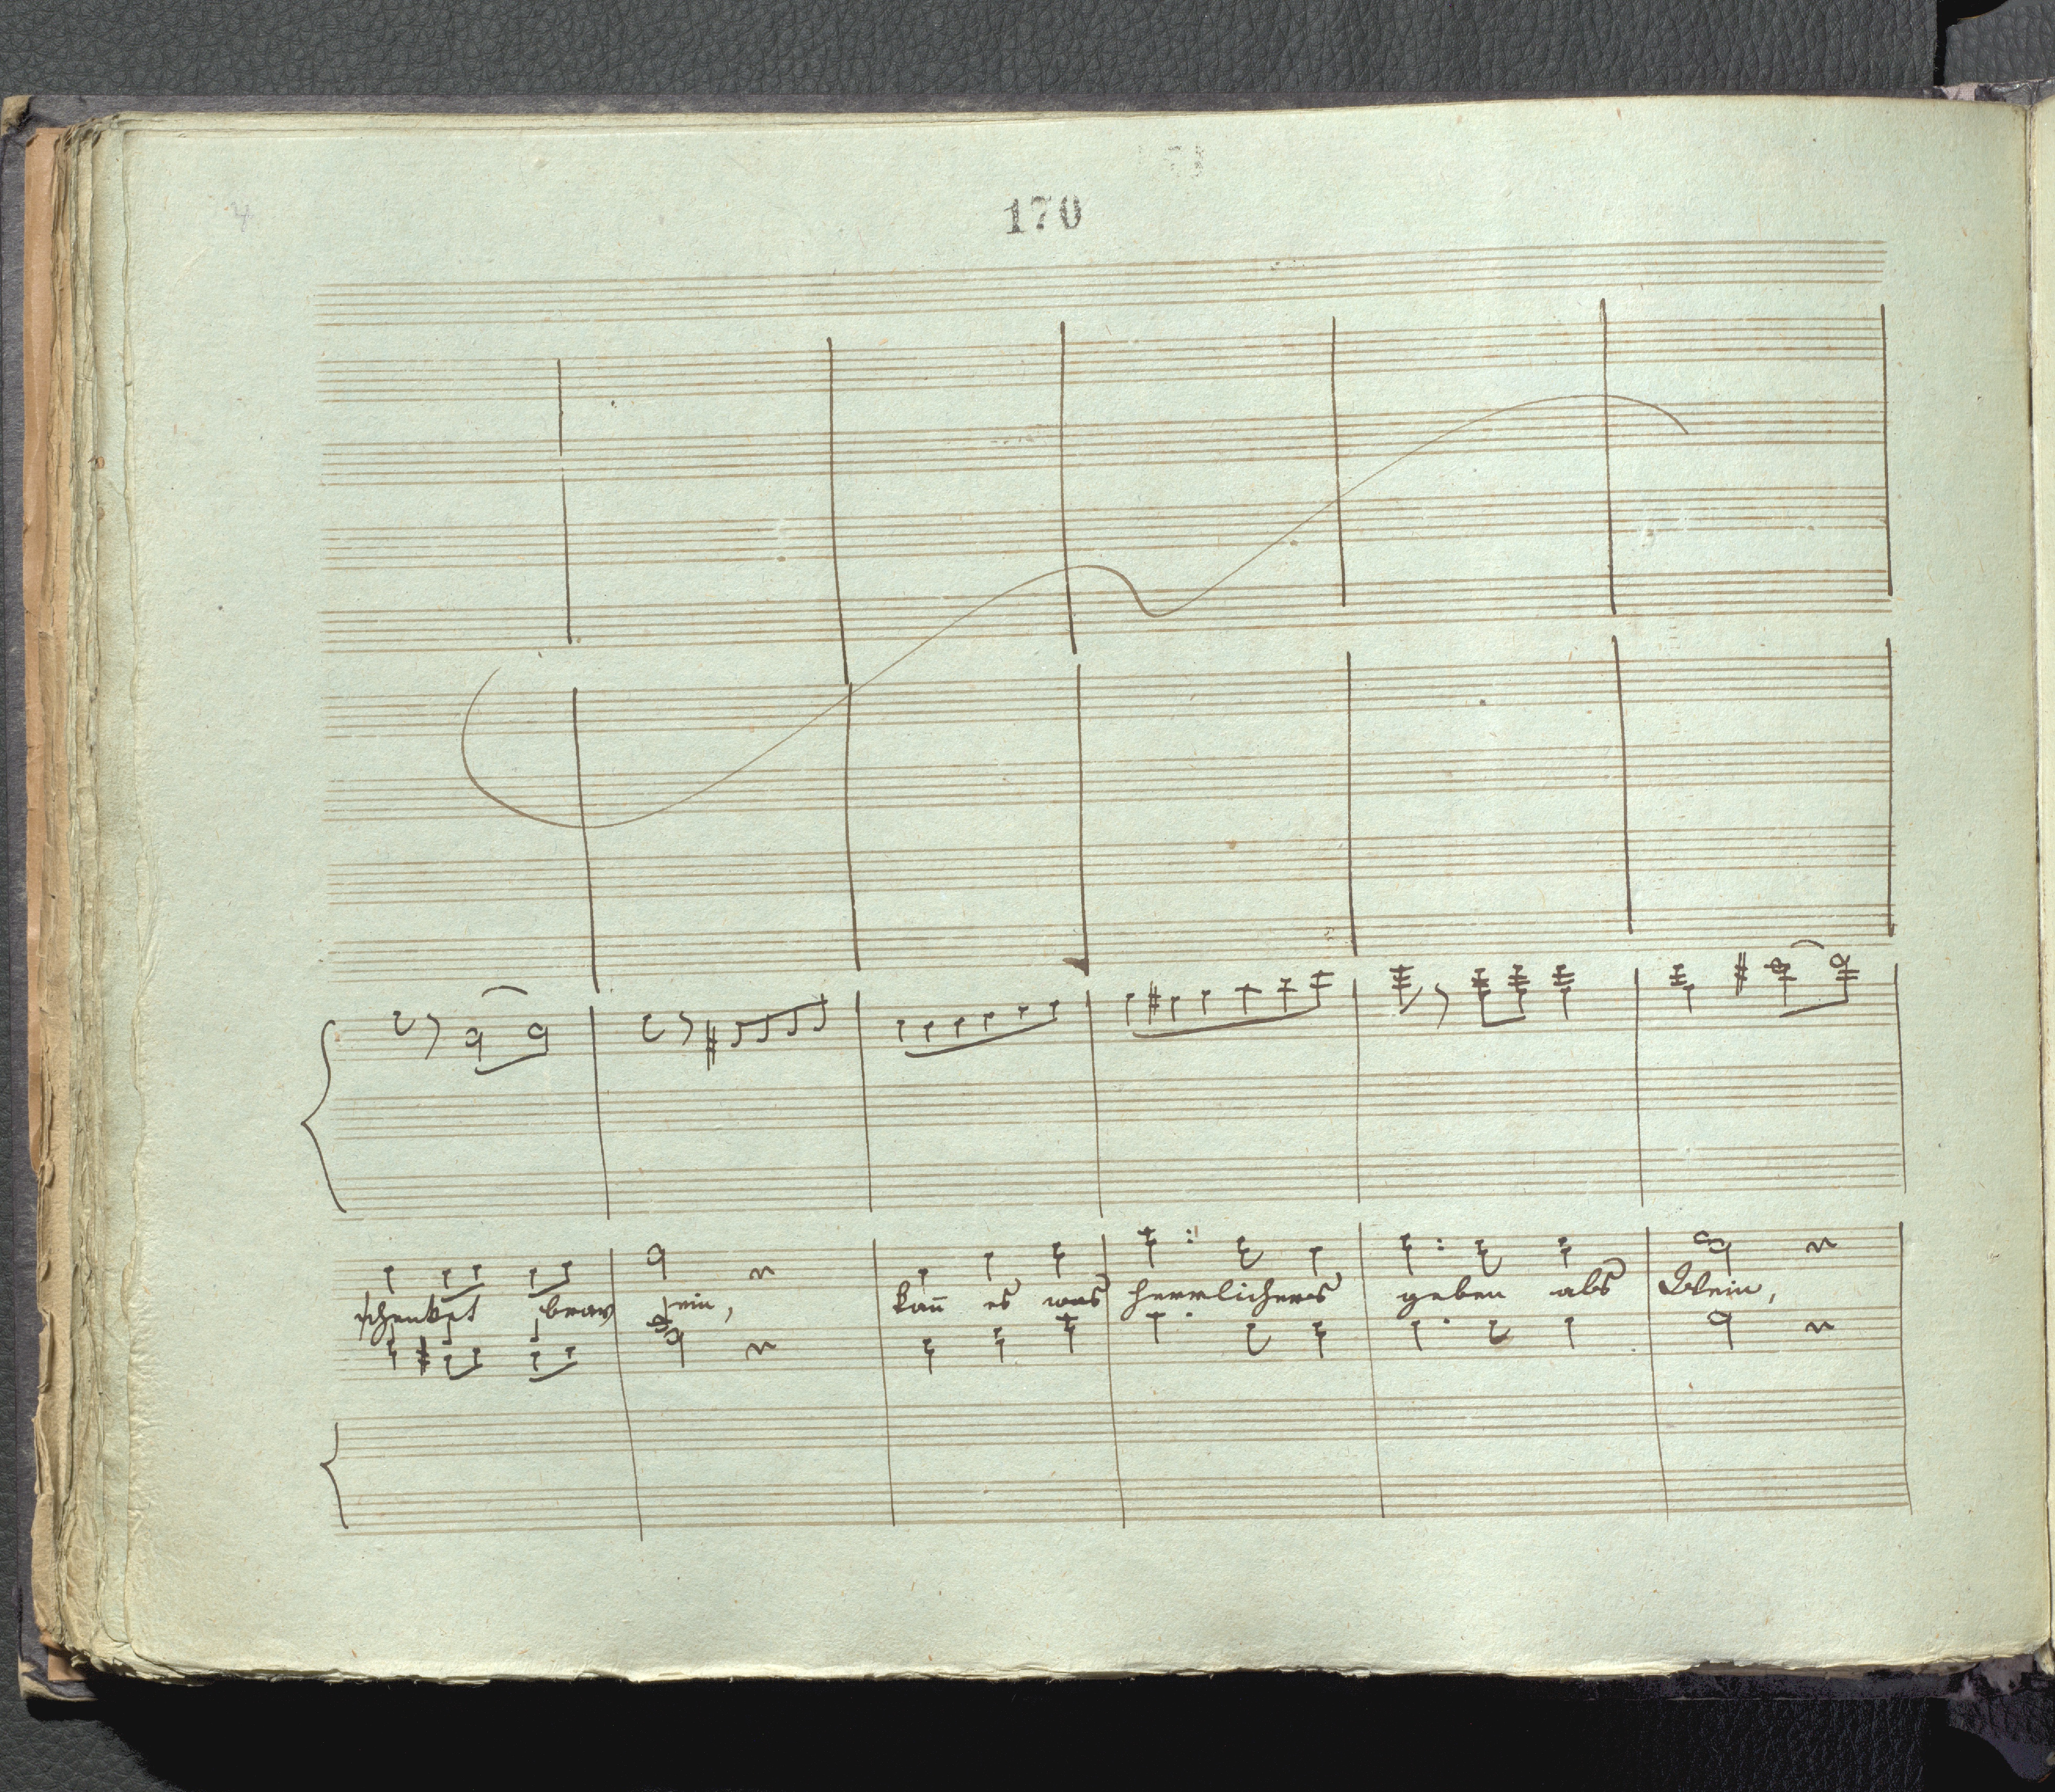 170
schenket brav ein, kañ es was herrlichers geben als Wein,